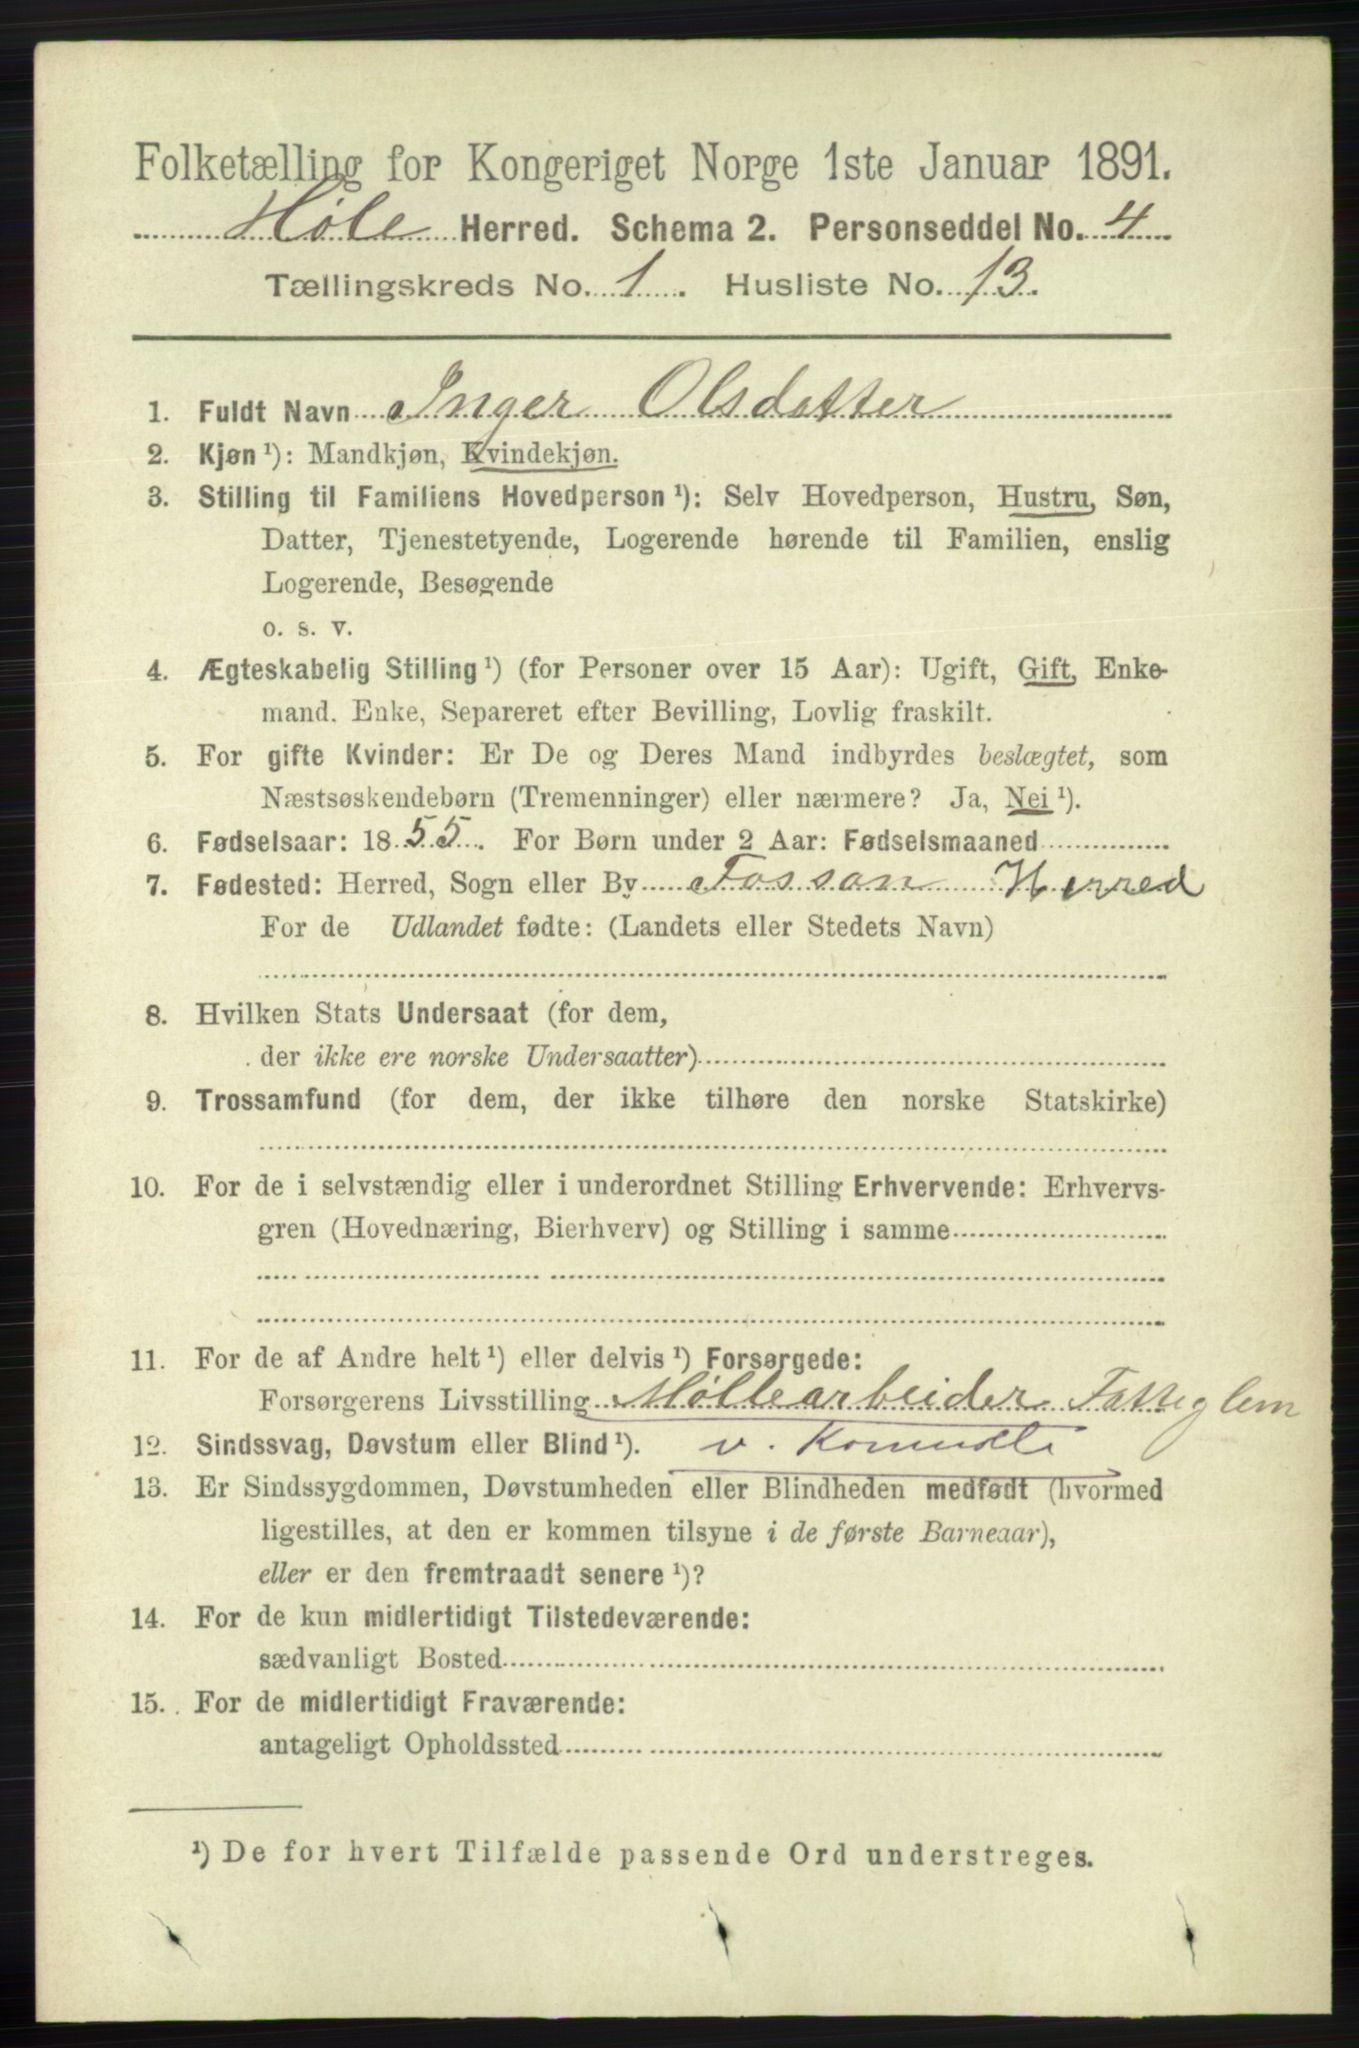 Folketælling for Kongeriget Norge 1ste Januar 1891.
Høle Herred. Schema 2. Personseddel No. 4
Tællingskreds No. 1. Husliste No. 13.
1. Fuldt Navn Inger Olsdatter
2. Kjøn ¹): Mandkjøn, Kvindekjøn.
3. Stilling til Familiens Hovedperson ¹): Selv Hovedperson, Hustru, Søn,
Datter, Tjenestetyende, Logerende hørende til Familien, enslig
Logerende, Besøgende
o. s. v.
4. Ægteskabelig Stilling ¹) (for Personer over 15 Aar): Ugift, Gift, Enke-
mand. Enke, Separeret efter Bevilling, Lovlig fraskilt.
5. For gifte Kvinder: Er De og Deres Mand indbyrdes beslægtet, som
Næstsøskendebørn (Tremenninger) eller nærmere? Ja, Nei ¹).
6. Fødselsaar: 1855. For Børn under 2 Aar: Fødselsmaaned
7. Fødested: Herred, Sogn eller By Fossan Herred
For de Udlandet fødte: (Landets eller Stedets Navn)
8. Hvilken Stats Undersaat (for dem,
der ikke ere norske Undersaatter)
9. Trossamfund (for dem, der ikke tilhøre den norske Statskirke)
10. For de i selvstændig eller i underordnet Stilling Erhvervende: Erhvervs-
gren (Hovednæring, Bierhverv) og Stilling i samme
11. For de af Andre helt ¹) eller delvis ¹) Forsørgede:
Forsørgerens Livsstilling Møllearbeider
12. Sindssvag, Døvstum eller Blind ¹). v.
13. Er Sindssygdommen, Døvstumheden eller Blindheden medfødt (hvormed
ligestilles, at den er kommen tilsyne i de første Barneaar),
eller er den fremtraadt senere ¹)?
14. For de kun midlertidigt Tilstedeværende:
sædvanligt Bosted
15. For de midlertidigt Fraværende:
antageligt Opholdssted
¹) De for hvert Tilfælde passende Ord understreges.